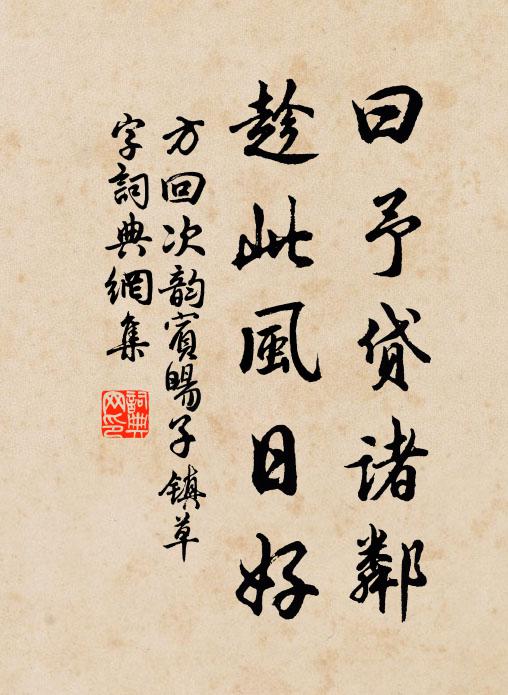 曰予貸諸鄰
趁此風日好
方回次韵賓暘子鎮草
字詞典網集
詞典网印